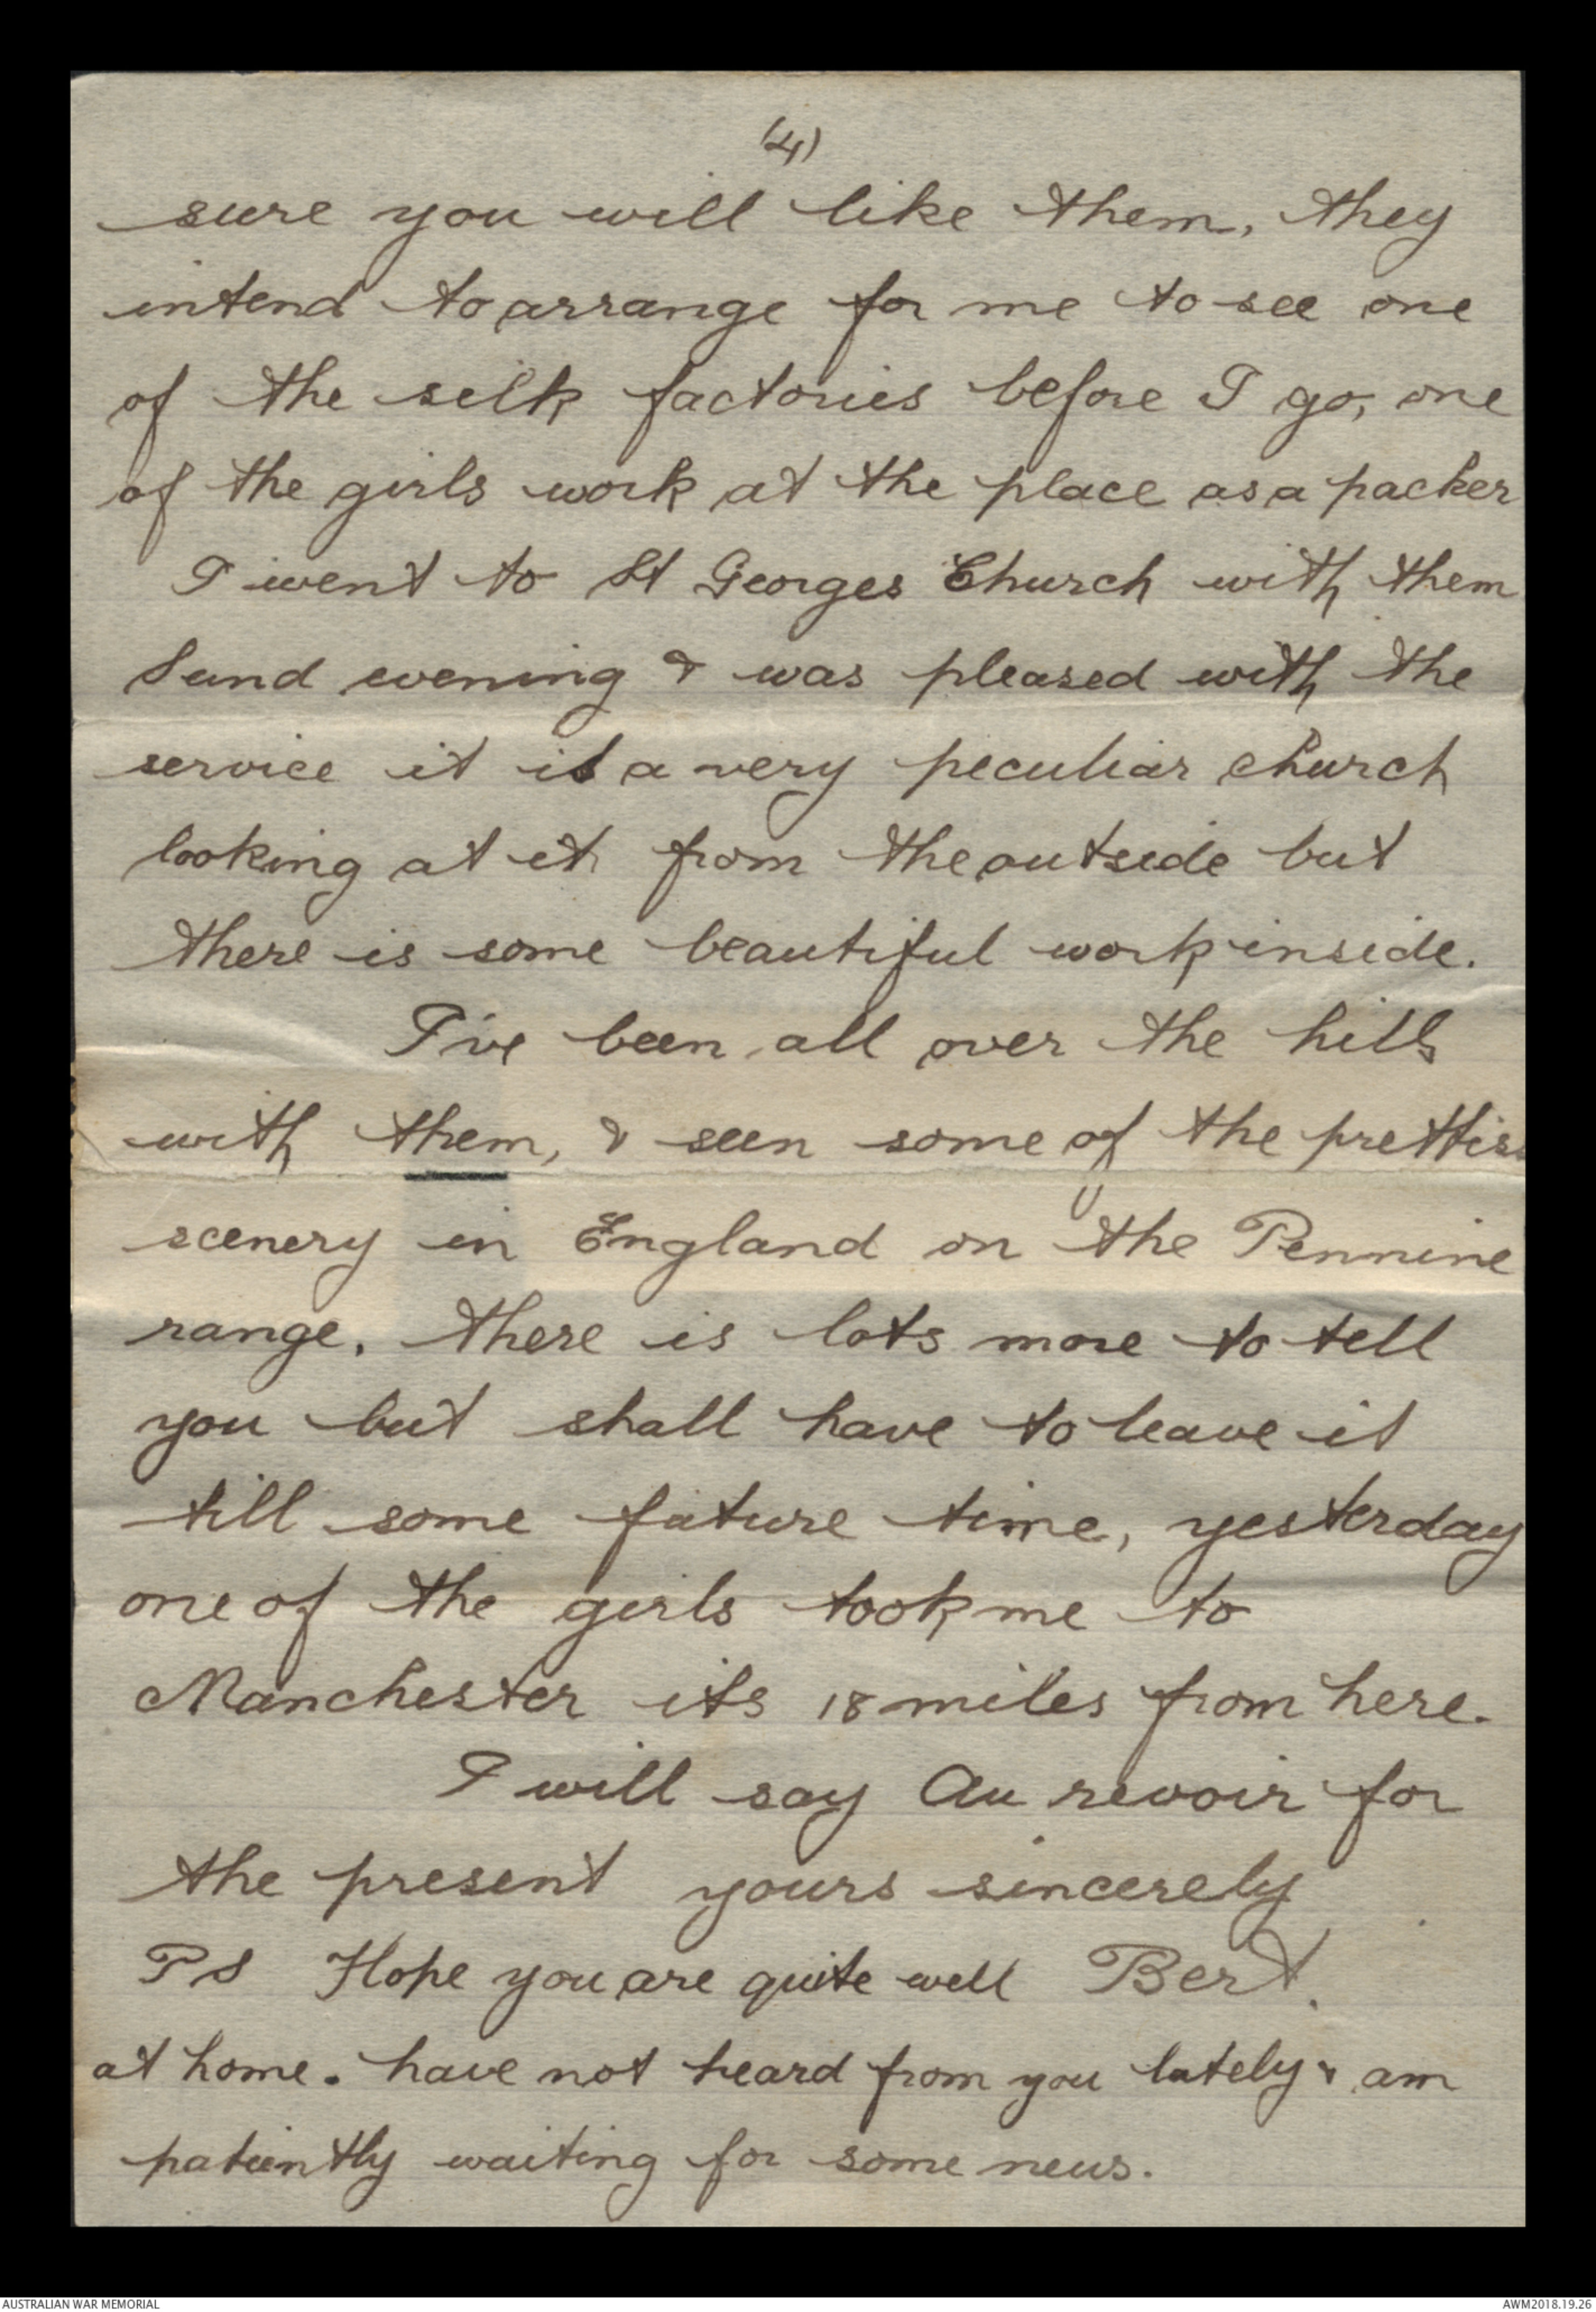 (4)
sure you will like them, they
intend to arrange for me to see one
of the silk factories before I go, one
of the girls work at the place as a packer
I went to St Georges Church with them
Sund evening & was pleased with the
service it is a very peculiar church
looking at it from the outside but
there is some beautiful work inside.
I've been all over the hills
with them, & seen some of the prettiss
scenery in England on the Pennine
range. There is lots more to tell
you but shall have to leave it
till some future time, yesterday
one of the girls took me to
Manchester its 18 miles from here.
I will say Au revoir for
the present yours sincerely
PS Hope you are quite well Bert.
at home. have not heard from you lately & am
patiently waiting for some news.
AUSTRALIAN WAR MEMORIAL
AWM2018.19.26